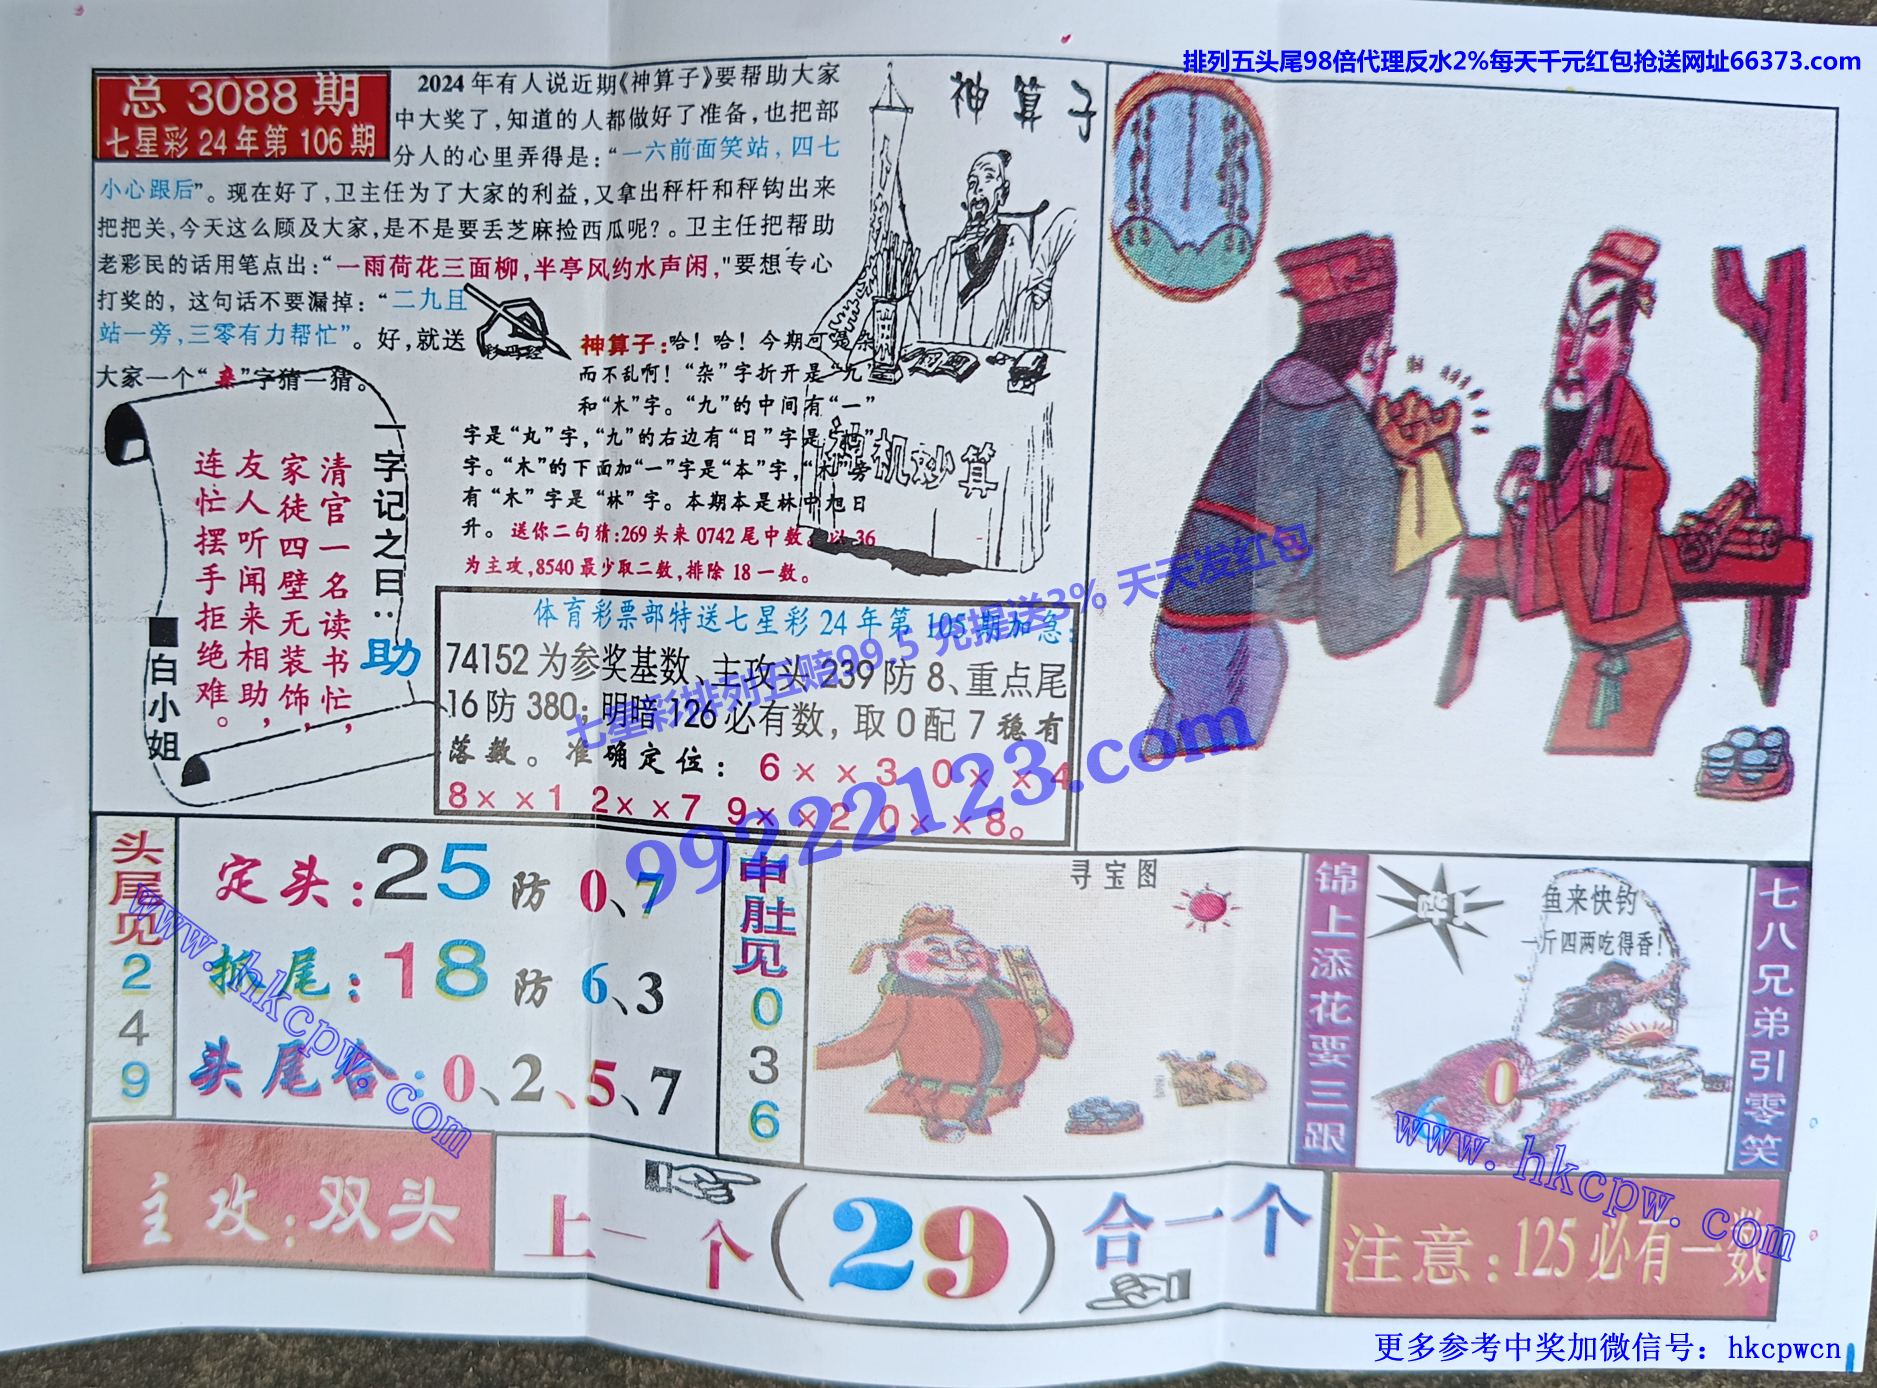 排列五头尾98倍代理反水2%每天千元红包抢送网址66373.com
总 3088 期
七星彩 24 年第 106 期
2024 年有人说近期《神算子》要帮助大家
中大奖了，知道的人都做好了准备，也把部
分人的心里弄得是：“一六前面笑站，四七
小心跟后”。现在好了，卫主任为了大家的利益，又拿出秤杆和秤钩出来
把把关，今天这么顾及大家，是不是要丢芝麻捡西瓜呢？。卫主任把帮助
老彩民的话用笔点出：“一雨荷花三面柳，半亭风约水声闲，”要想专心
打奖的，这句话不要漏掉：“二九且
站一旁，三零有力帮忙”。好，就送
大家一个“杂”字猜一猜。
神算子
彩码经
神算子：哈！哈！今期可是杂
而不乱啊！“杂”字折开是“九”
和“木”字。“九”的中间有“一”
字是“丸”字，“九”的右边有“日”字是“旭”
字。“木”的下面加“一”字是“本”字，“木”旁
有“木”字是“林”字。本期本是林中旭日
升。送你二句猜：269 头来 0742 尾中数。以 36
为主攻，8540 最少取二数，排除 18 一数。
神机妙算
一字记之曰：助
清官一名读书忙，
家徒四壁无装饰，
友人听闻来相助，
连忙摆手拒绝难。
■白小姐
体育彩票部特送七星彩 24 年第 105 期加急：
74152 为参奖基数、主攻头 239 防 8、重点尾
16 防 380；明暗 126 必有数，取 0 配 7 稳有
落数。准确定位：6××3 0××4
8××1 2××7 9××2 0××8。
七星彩排列五赔99.5 充提送3% 天天发红包
99222123.com
头尾见249
定头：25 防 0、7
抓尾：18 防 6、3
头尾合：0、2、5、7
www.hkcpw.com
中肚见036
寻宝图
锦上添花要三跟
鱼来快钓
一斤四两吃得香！
0
6
七八兄弟引零笑
www.hkcpw.com
主攻：双头
上一个（29）合一个
注意：125 必有一数
更多参考中奖加微信号：hkcpwcn